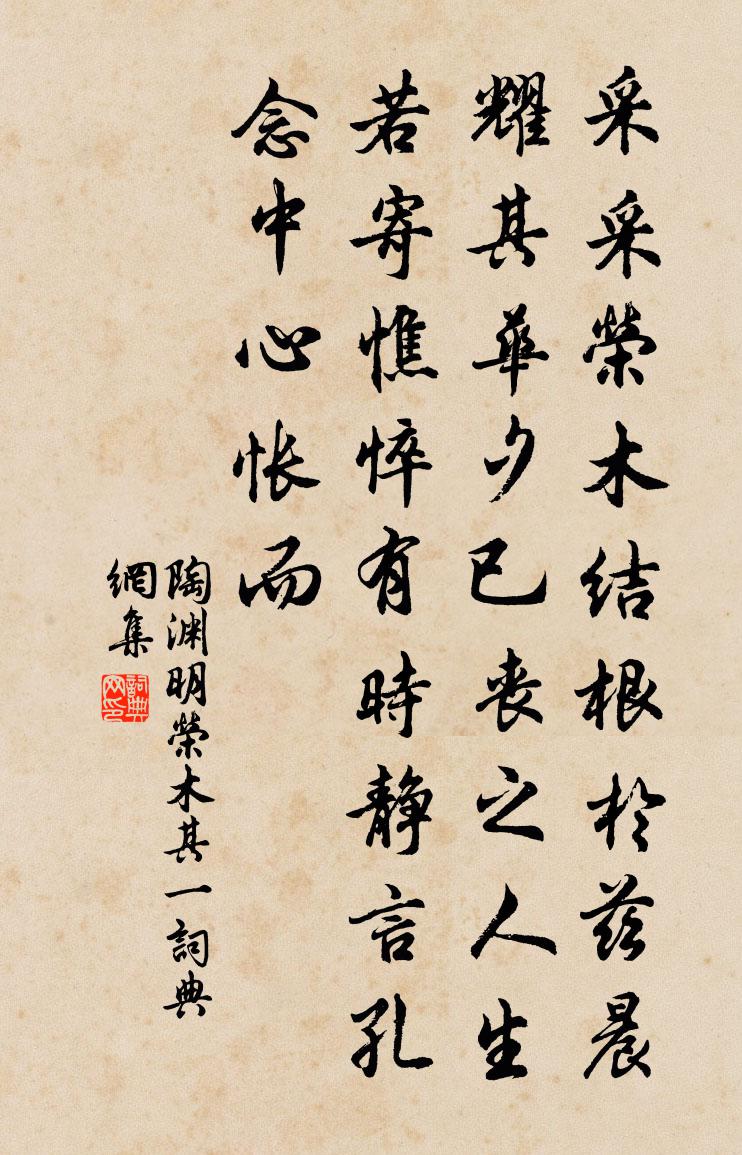 采采榮木結根於茲晨
耀其華夕已喪之人生
若寄憔悴有時静言孔
念中心悵而
陶渊明榮木其一詞典
網集
詞典
网印